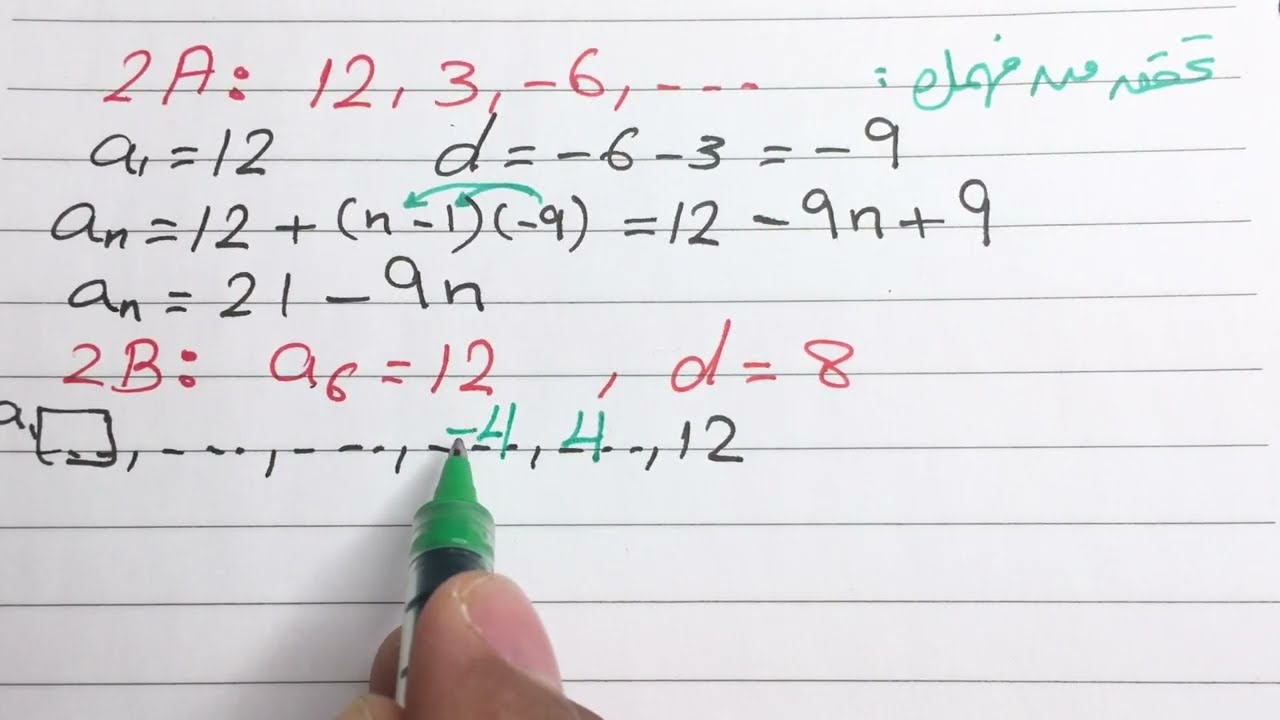 2A: 12, 3, -6, --- تحقق من فهمك :
a₁ = 12 d = -6 - 3 = -9
aₙ = 12 + (n - 1)(-9) = 12 - 9n + 9
aₙ = 21 - 9n
2B: a₆ = 12 , d = 8
a₁ ---, ----, ----, -4, 4, 12